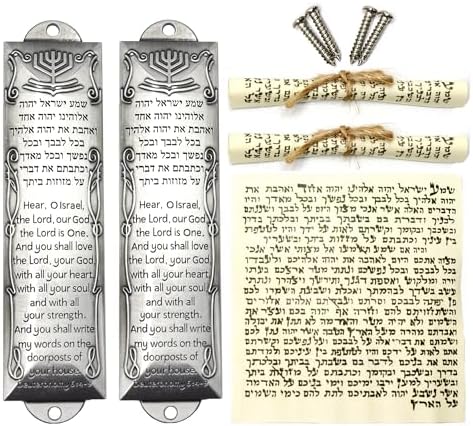 שמע ישראל יהוה
אלוהינו יהוה אחד
ואהבת את יהוה אלהיך
בכל לבבך ובכל
נפשך ובכל מאדך
וכתבתם את דברי
על מזוזות ביתך
Hear, O Israel,
the Lord, our God,
the Lord is One.
And you shall love
the Lord, your God,
with all your heart,
with all your soul
and with all
your strength.
And you shall write
my words on the
doorposts of
your house.
Deuteronomy 6:4-9
שמע ישראל יהוה
אלוהינו יהוה אחד
ואהבת את יהוה אלהיך
בכל לבבך ובכל
נפשך ובכל מאדך
וכתבתם את דברי
על מזוזות ביתך
Hear, O Israel,
the Lord, our God,
the Lord is One.
And you shall love
the Lord, your God,
with all your heart,
with all your soul
and with all
your strength.
And you shall write
my words on the
doorposts of
your house.
Deuteronomy 6:4-9
שמע ישראל יהוה אלהינו יהוה אחד ואהבת את
יהוה אלהיך בכל לבבך ובכל נפשך ובכל מאדך והיו
הדברים האלה אשר אנכי מצוך היום על לבבך ושננתם
לבניך ודברת בם בשבתך בביתך ובלכתך בדרך
ובשכבך ובקומך וקשרתם לאות על ידך והיו לטטפת
בין עיניך וכתבתם על מזזות ביתך ובשעריך
והיה אם שמע תשמעו אל מצותי אשר אנכי
מצוה אתכם היום לאהבה את יהוה אלהיכם ולעבדו
בכל לבבכם ובכל נפשכם ונתתי מטר ארצכם בעתו
יורה ומלקוש ואספת דגנך ותירשך ויצהרך ונתתי
עשב בשדך לבהמתך ואכלת ושבעת השמרו לכם
פן יפתה לבבכם וסרתם ועבדתם אלהים אחרים
והשתחויתם להם וחרה אף יהוה בכם ועצר את
השמים ולא יהיה מטר והאדמה לא תתן את יבולה
ואבדתם מהרה מעל הארץ הטבה אשר יהוה נתן לכם
ושמתם את דברי אלה על לבבכם ועל נפשכם וקשרתם
אתם לאות על ידכם והיו לטוטפת בין עיניכם ולמדתם
אתם את בניכם לדבר בם בשבתך בביתך ובלכתך
בדרך ובשכבך ובקומך וכתבתם על מזוזות ביתך
ובשעריך למען ירבו ימיכם וימי בניכם על האדמה
אשר נשבע יהוה לאבתיכם לתת להם כימי השמים
על הארץ